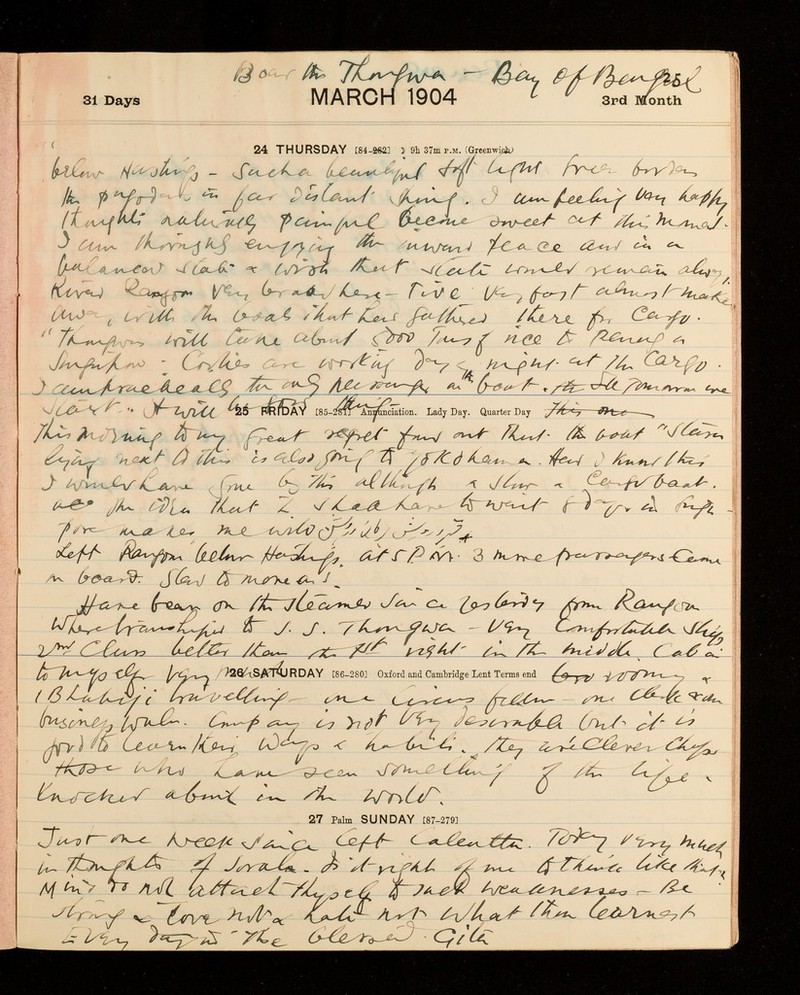 Board the Thongwa - Bay of Bengal
31 Days MARCH 1904 3rd Month
24 THURSDAY [84-282] 9h 37m P.M. (Greenwich)
below Hastings - Such a beautiful soft light
the pagodas in far distant. I am feeling very happy
thoughts naturally painful become sweet at this moment.
I am thoroughly enjoying the inward peace and in a
balanced state & wish that state would remain always.
River Rangoon very broad here - Tide very fast almost
with the boats that had gathered there for cargo.
"Thongwa will take about 5000 Tons of rice to Penang &
Singapore. Coolies are working day & night at the cargo.
I am practically the only passenger on the boat. Tomorrow we
start. It will be
25 FRIDAY [85-281] Annunciation. Lady Day. Quarter Day This one
This morning to my great regret found out that the boat
lying next to this is also going to Yokohama. Had I known this
I would have gone by this although a slow & Cargo boat.
the idea that I shall have to wait 8 days in Singa-
pore makes me wild
Left Rangoon below Hastings at 5 P.M. 3 more passengers came
on board.
Have been on the steamer since yesterday from Rangoon
where transhipped to S. S. Thongwa - Very comfortable ship
2nd Class better than the 1st right in the middle. Cabin
to myself very much
26 SATURDAY [86-280] Oxford and Cambridge Lent Terms end two roomy &
1 Bhabiji travelling - one Circus fellow - one Clerk & an
business walla. Company is not very desirable but it is
good to learn their ways & habits. They are Clever Chaps
those who have seen something of the life &
knocked about in the world.
27 Palm SUNDAY [87-279]
Just one week since left Calcutta. Today very much
in thoughts of Sorala. Is it right of me to think like that?
Mind do not attach thyself to such weaknesses - Be
strong & love not & hate not what thou learnest
Every day in the blessed Gita